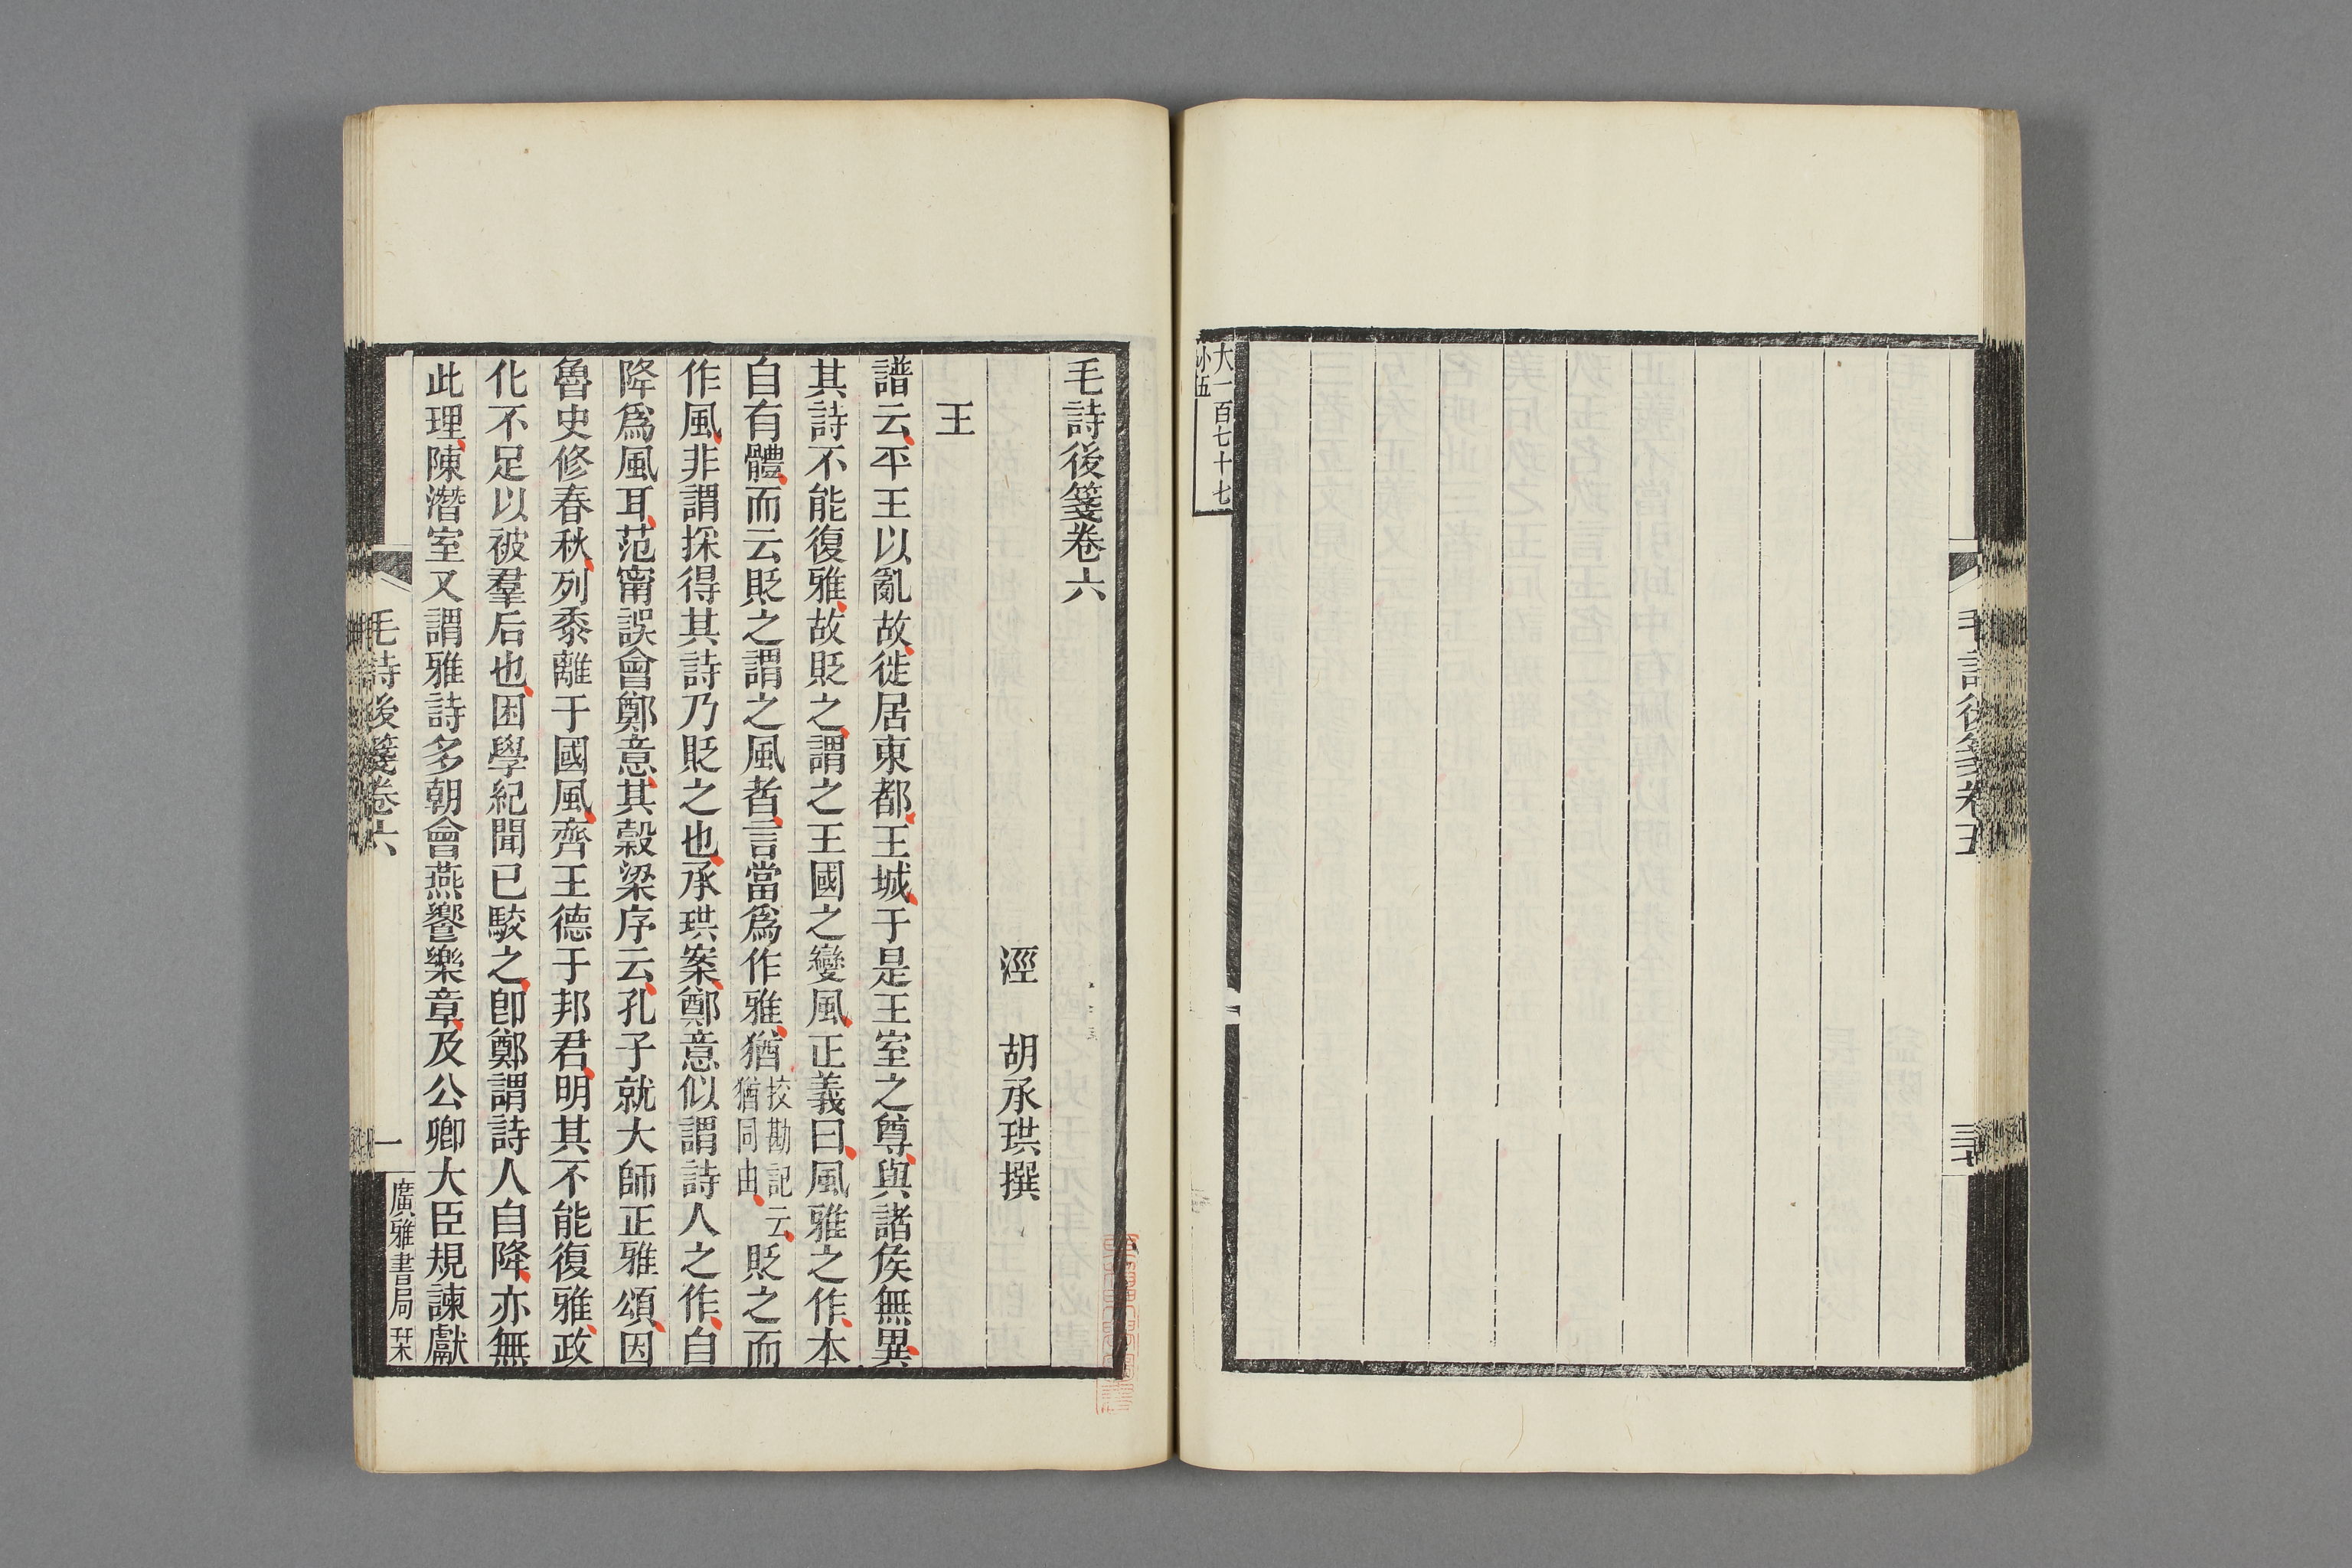 毛詩後箋卷五
三十七
大一百七十七
小五
毛詩後箋卷六
涇　胡承珙撰
王
譜云平王以亂故徙居東都王城于是王室之尊與諸侯無異
其詩不能復雅故貶之謂之王國之變風正義曰風雅之作本
自有體而云貶之謂之風者言當爲作雅猶挍勘記云猶同由貶之而
作風非謂採得其詩乃貶之也承珙案鄭意似謂詩人之作自
降爲風耳范甯誤會鄭意其榖梁序云孔子就大師正雅頌因
魯史修春秋列黍離于國風齊王德于邦君明其不能復雅政
化不足以被羣后也困學紀聞已駮之卽鄭謂詩人自降亦無
此理陳潛室又謂雅詩多朝會燕饗樂章及公卿大臣規諫獻
毛詩後箋卷六
一
廣雅書局栞